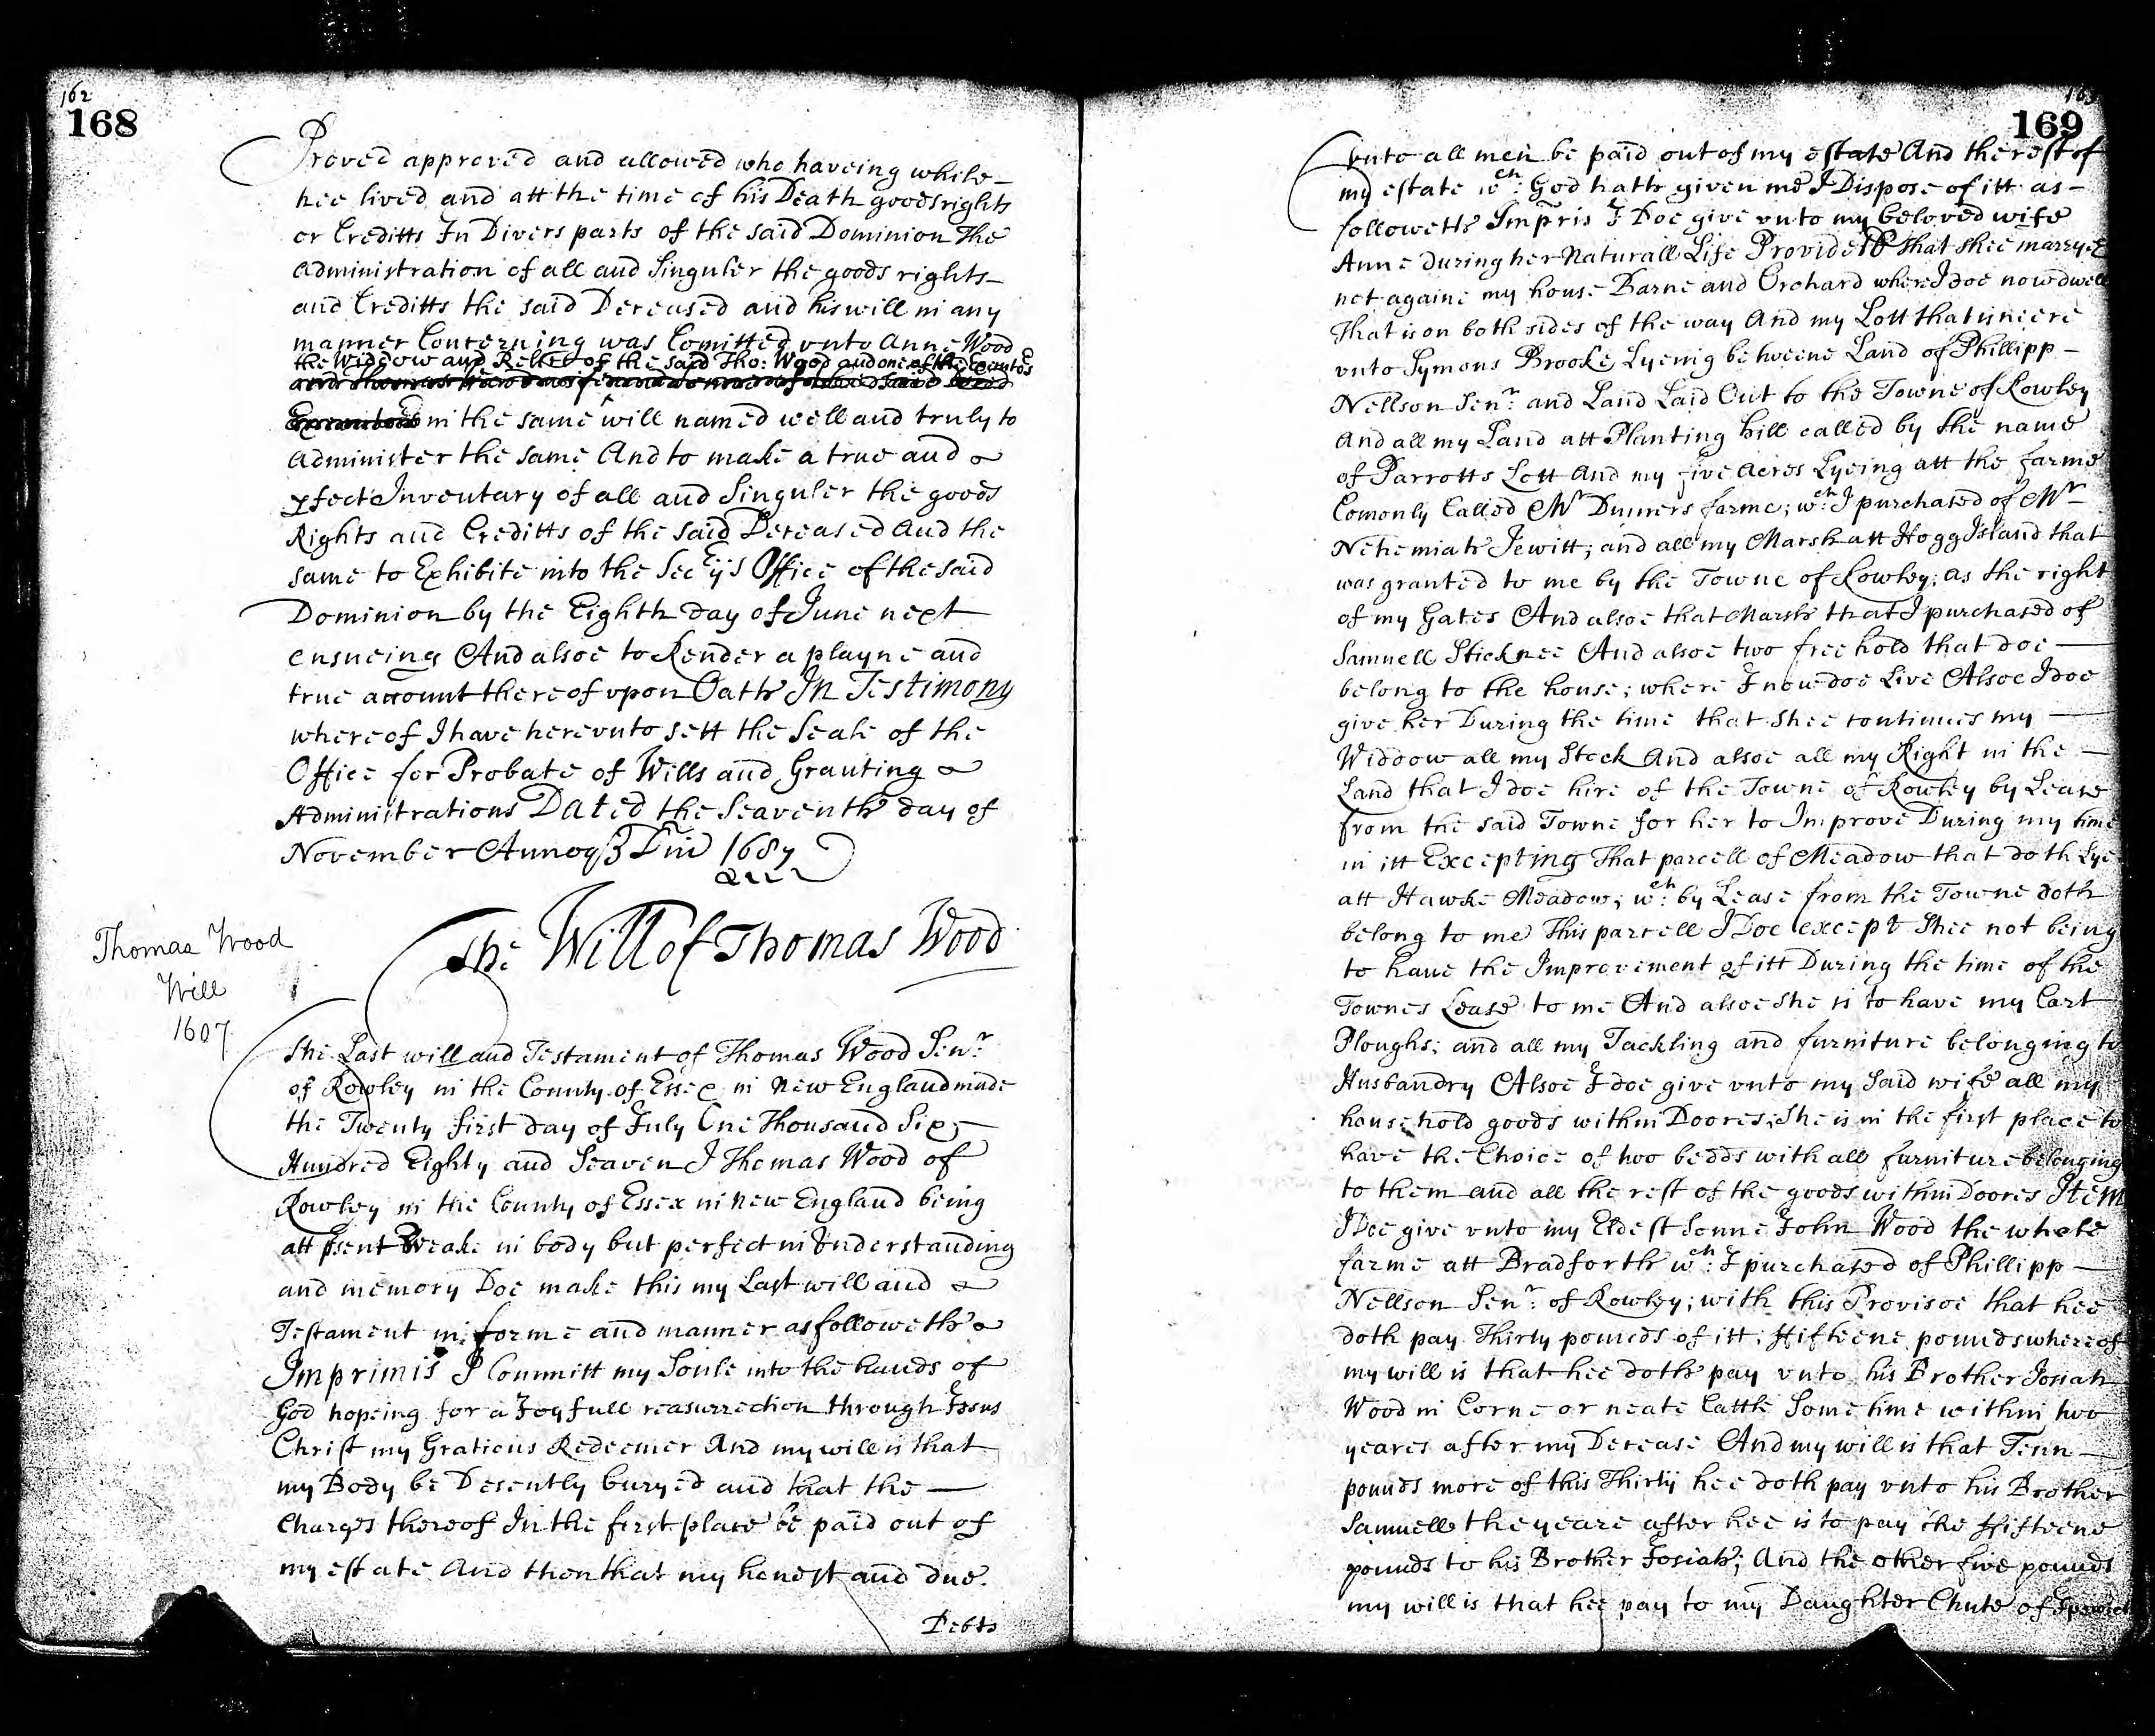 162
168
Proved approved and allowed who haveing while
hee lived and att the time of his Death goods rights
or Creditts In Divers parts of the said Dominion The
Administration of all and Singuler the goods rights
and Creditts the said Deceased and his will in any
manner Concerning was Comitted vnto Anne Wood
the Widdow and Relict of the said Tho: Wood and one of the Executos
in the same will named well and truly to
Administer the same And to make a true and
pfect Inventary of all and Singuler the goods
Rights and Creditts of the said Deceased And the
same to Exhibite into the Secryjs Office of the said
Dominion by the Eighth day of June next
ensueing And alsoe to Render a playne and
true account thereof vpon Oath In Testimony
whereof I have herevnto sett the Seale of the
Office for Probate of Wills and Granting
Administrations Dated the Seaventh day of
November Annoq3 Dni 1687
Thomas Wood
Will
1607
The Will of Thomas Wood
The Last will and Testament of Thomas Wood Senr:
of Rowley in the County of Essex in New England made
the Twenty first day of July One Thousand Six
Hundred Eighty and Seaven I Thomas Wood of
Rowley in the County of Essex in New England being
att psent Weake in body but perfect in Understanding
and memory Doe make this my Last will and
Testament in forme and manner as followeth
Imprimis I Committ my Soule into the hands of
God hopeing for a Joyfull reasurrection through Jesus
Christ my Gratious Redeemer And my will is that
my Body be Desently buryed and that the
Charges thereof In the first place be paid out of
my estate And then that my honest and due
Debts
169
vnto all men be paid out of my estate And the rest of
my estate wch: God hath given me I Dispose of itt as
followeth Impris I Doe give vnto my beloved wife
Anne during her Naturall Life Provided that shee marryeth
not againe my house Barne and Orchard where I doe now dwell
That is on both sides of the way And my Lott that is neere
vnto Symons Brooke Lyeing betweene Land of Phillipp
Nellson Senr: and Land Laid Out to the Towne of Rowley
And all my Land att Planting hill called by the name
of Parrotts Lott And my five Acres Lyeing att the farme
Comonly Called Mr Dumers farme; wch: I purchased of Mr
Nehemiah Jewitt; and all my Marsh att Hogg Island that
was granted to me by the Towne of Rowley; as the right
of my Gates And alsoe that Marsh that I purchased of
Samuell Sticknee And alsoe two free hold that doe
belong to the house; where I now doe Live Alsoe I doe
give her During the time that Shee continues my
Widdow all my Stock And alsoe all my Right in the
Land that I doe hire of the Towne of Rowley by Lease
from the said Towne for her to Improve During my time
in itt Excepting That parcell of Meadow that doth Lye
att Hawke Meadow; wch: by Lease from the Towne doth
belong to me This parcell I Doe except Shee not being
to have the Improvement of itt During the time of the
Townes Lease to me And alsoe she is to have my Cart
Ploughs; and all my Tackling and furniture belonging to
Husbandry Alsoe I doe give vnto my said wife all my
household goods within Doores; She is in the first place to
have the Choice of two bedds with all furniture belonging
to them and all the rest of the goods within Doores Item
I Doe give vnto my Eldest Sonne John Wood the whole
farme att Bradforth wch: I purchased of Phillipp
Nellson Senr: of Rowley; with this Provisoe that hee
doth pay Thirty pounds of itt; ffifteene pounds whereof
my will is that hee doth pay vnto his Brother Josiah
Wood in Corne or neate Cattle Some time within two
yeares after my Decease And my will is that Tenn
pounds more of this Thirty hee doth pay vnto his Brother
Samuell the yeare after hee is to pay the ffifteene
pounds to his Brother Josiah; And the other five pounds
my will is that hee pay to my Daughter Chute of Ipswich